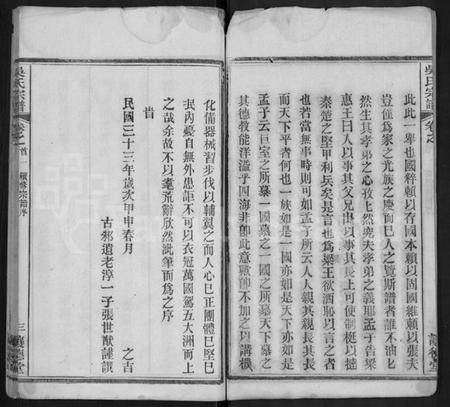 吳氏宗譜
卷之
此此一舉也國粹賴以存國本賴以固國維賴以張夫
豈僅為家之光族之慶而已哉吾人之覽斯譜者誰不油
然生其孝弟之心孜然堯夫孝弟之義耶孟子告梁
惠王曰入以事其父兄出以事其長上可使制梃以撻
秦楚之堅甲利兵矣是言也為梁王欲洒恥以言之者
也若當無事時則可如孟子所云人人親其親長其長
而天下平者何也一族如是一國亦如是天下亦如是
孟子云巨室之所慕一國慕之一國之所慕天下慕之
其德教能洋溢乎四海非卽此意歟而不加之以講機
化備器械習步伐以輔翼之而人心已正團體已堅已
民內憂自無外患詎不可以衣冠萬國駕五大洲而上
之哉余故不以耄荒辭欣然泚筆而為之序
旹
民國三十三年歲次甲申春月 之吉
古邾遺老淳一子張世猷謹譔
吳氏宗譜
卷之首一
續修宗譜序
三